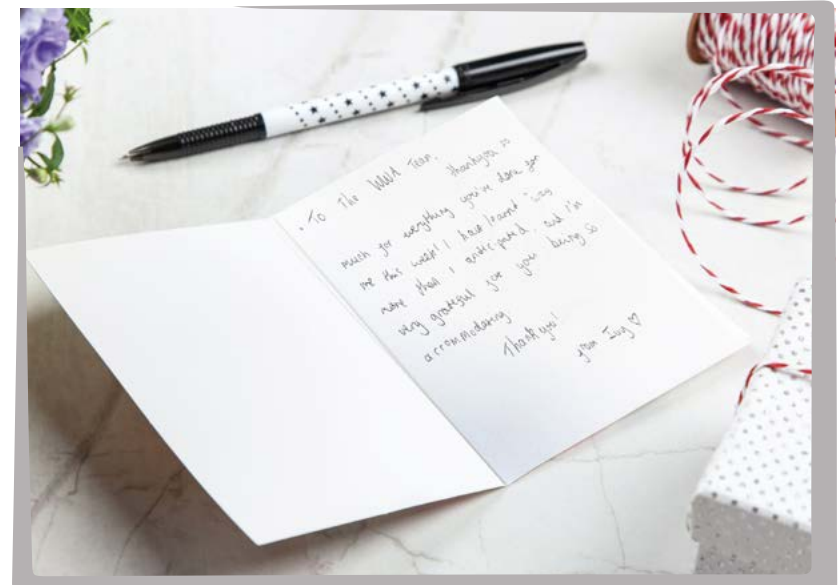 To The WWA Team,
Thankyou so
much for everything you've done for
me this week! I have learnt way
more than I anticipated, and I'm
very grateful for you being so
accommodating
Thank you!
from